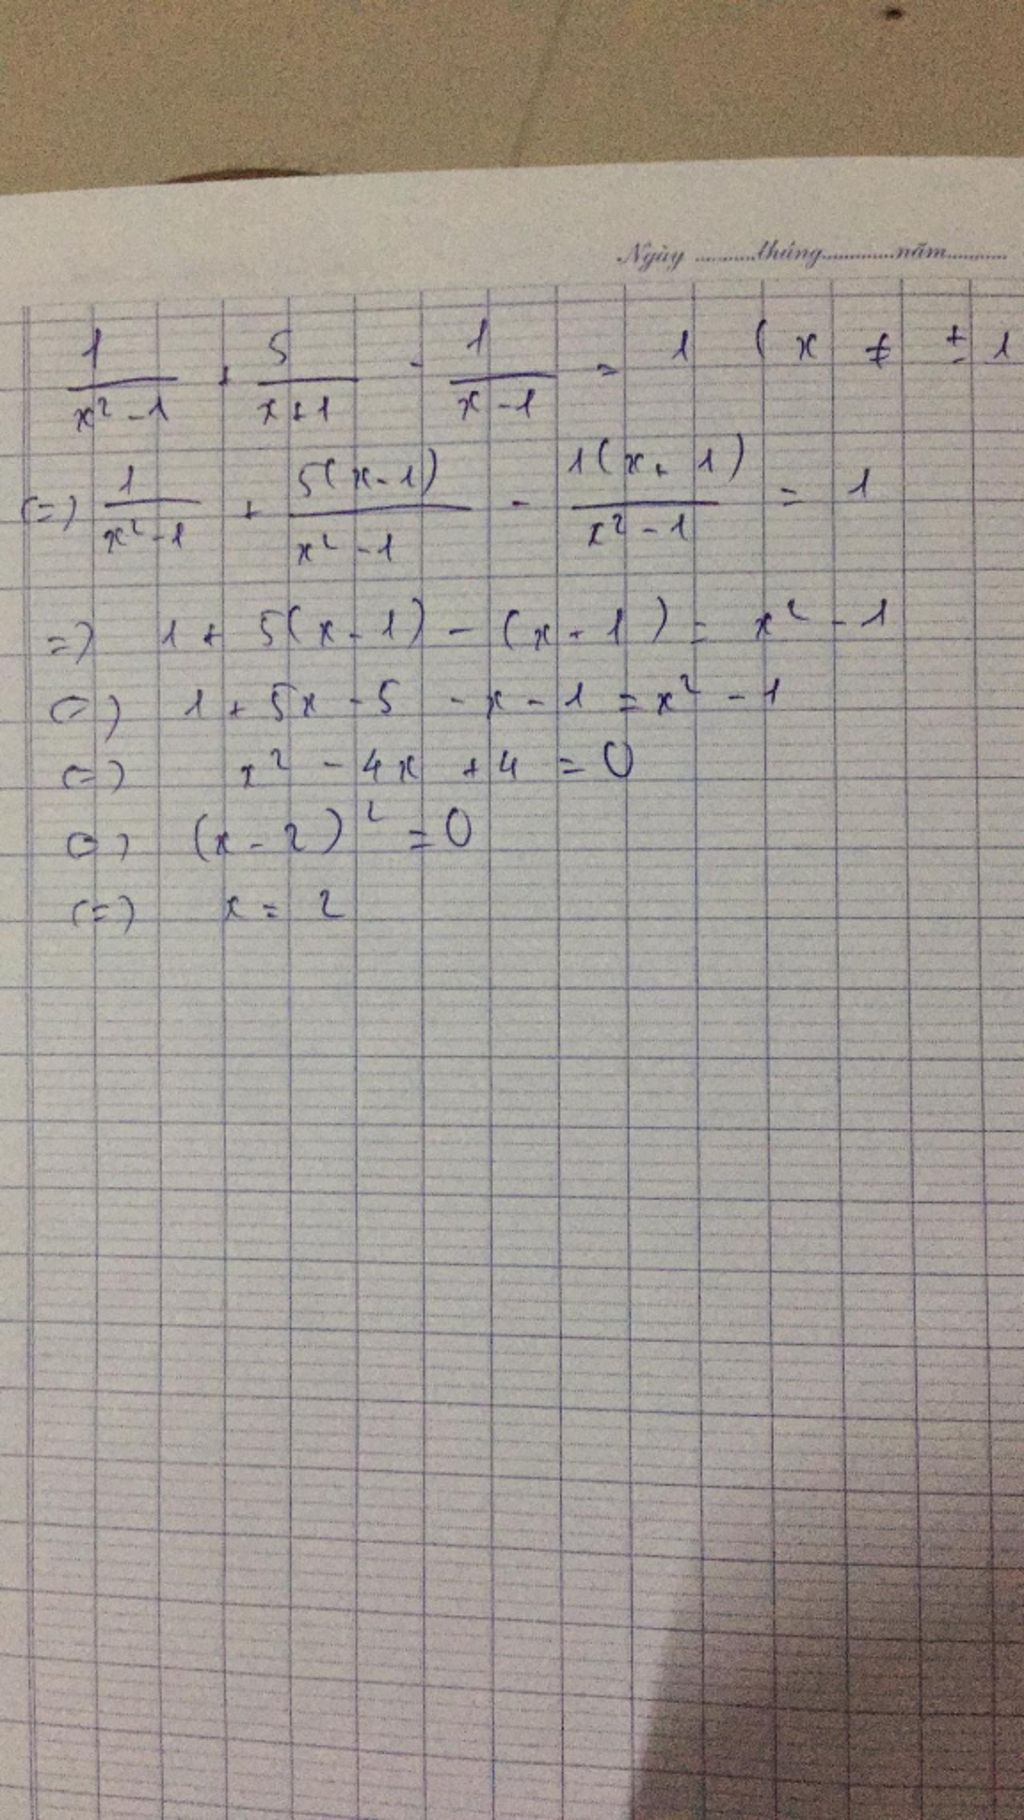 Ngày ..........tháng............năm..........
1/(x² - 1) + 5/(x + 1) - 1/(x - 1) = 1 ( x ≠ ± 1
(=) 1/(x² - 1) + 5(x - 1)/(x² - 1) - 1(x + 1)/(x² - 1) = 1
=) 1 + 5(x - 1) - (x + 1) = x² - 1
(=) 1 + 5x - 5 - x - 1 = x² - 1
(=) x² - 4x + 4 = 0
(=) (x - 2)² = 0
(=) x = 2